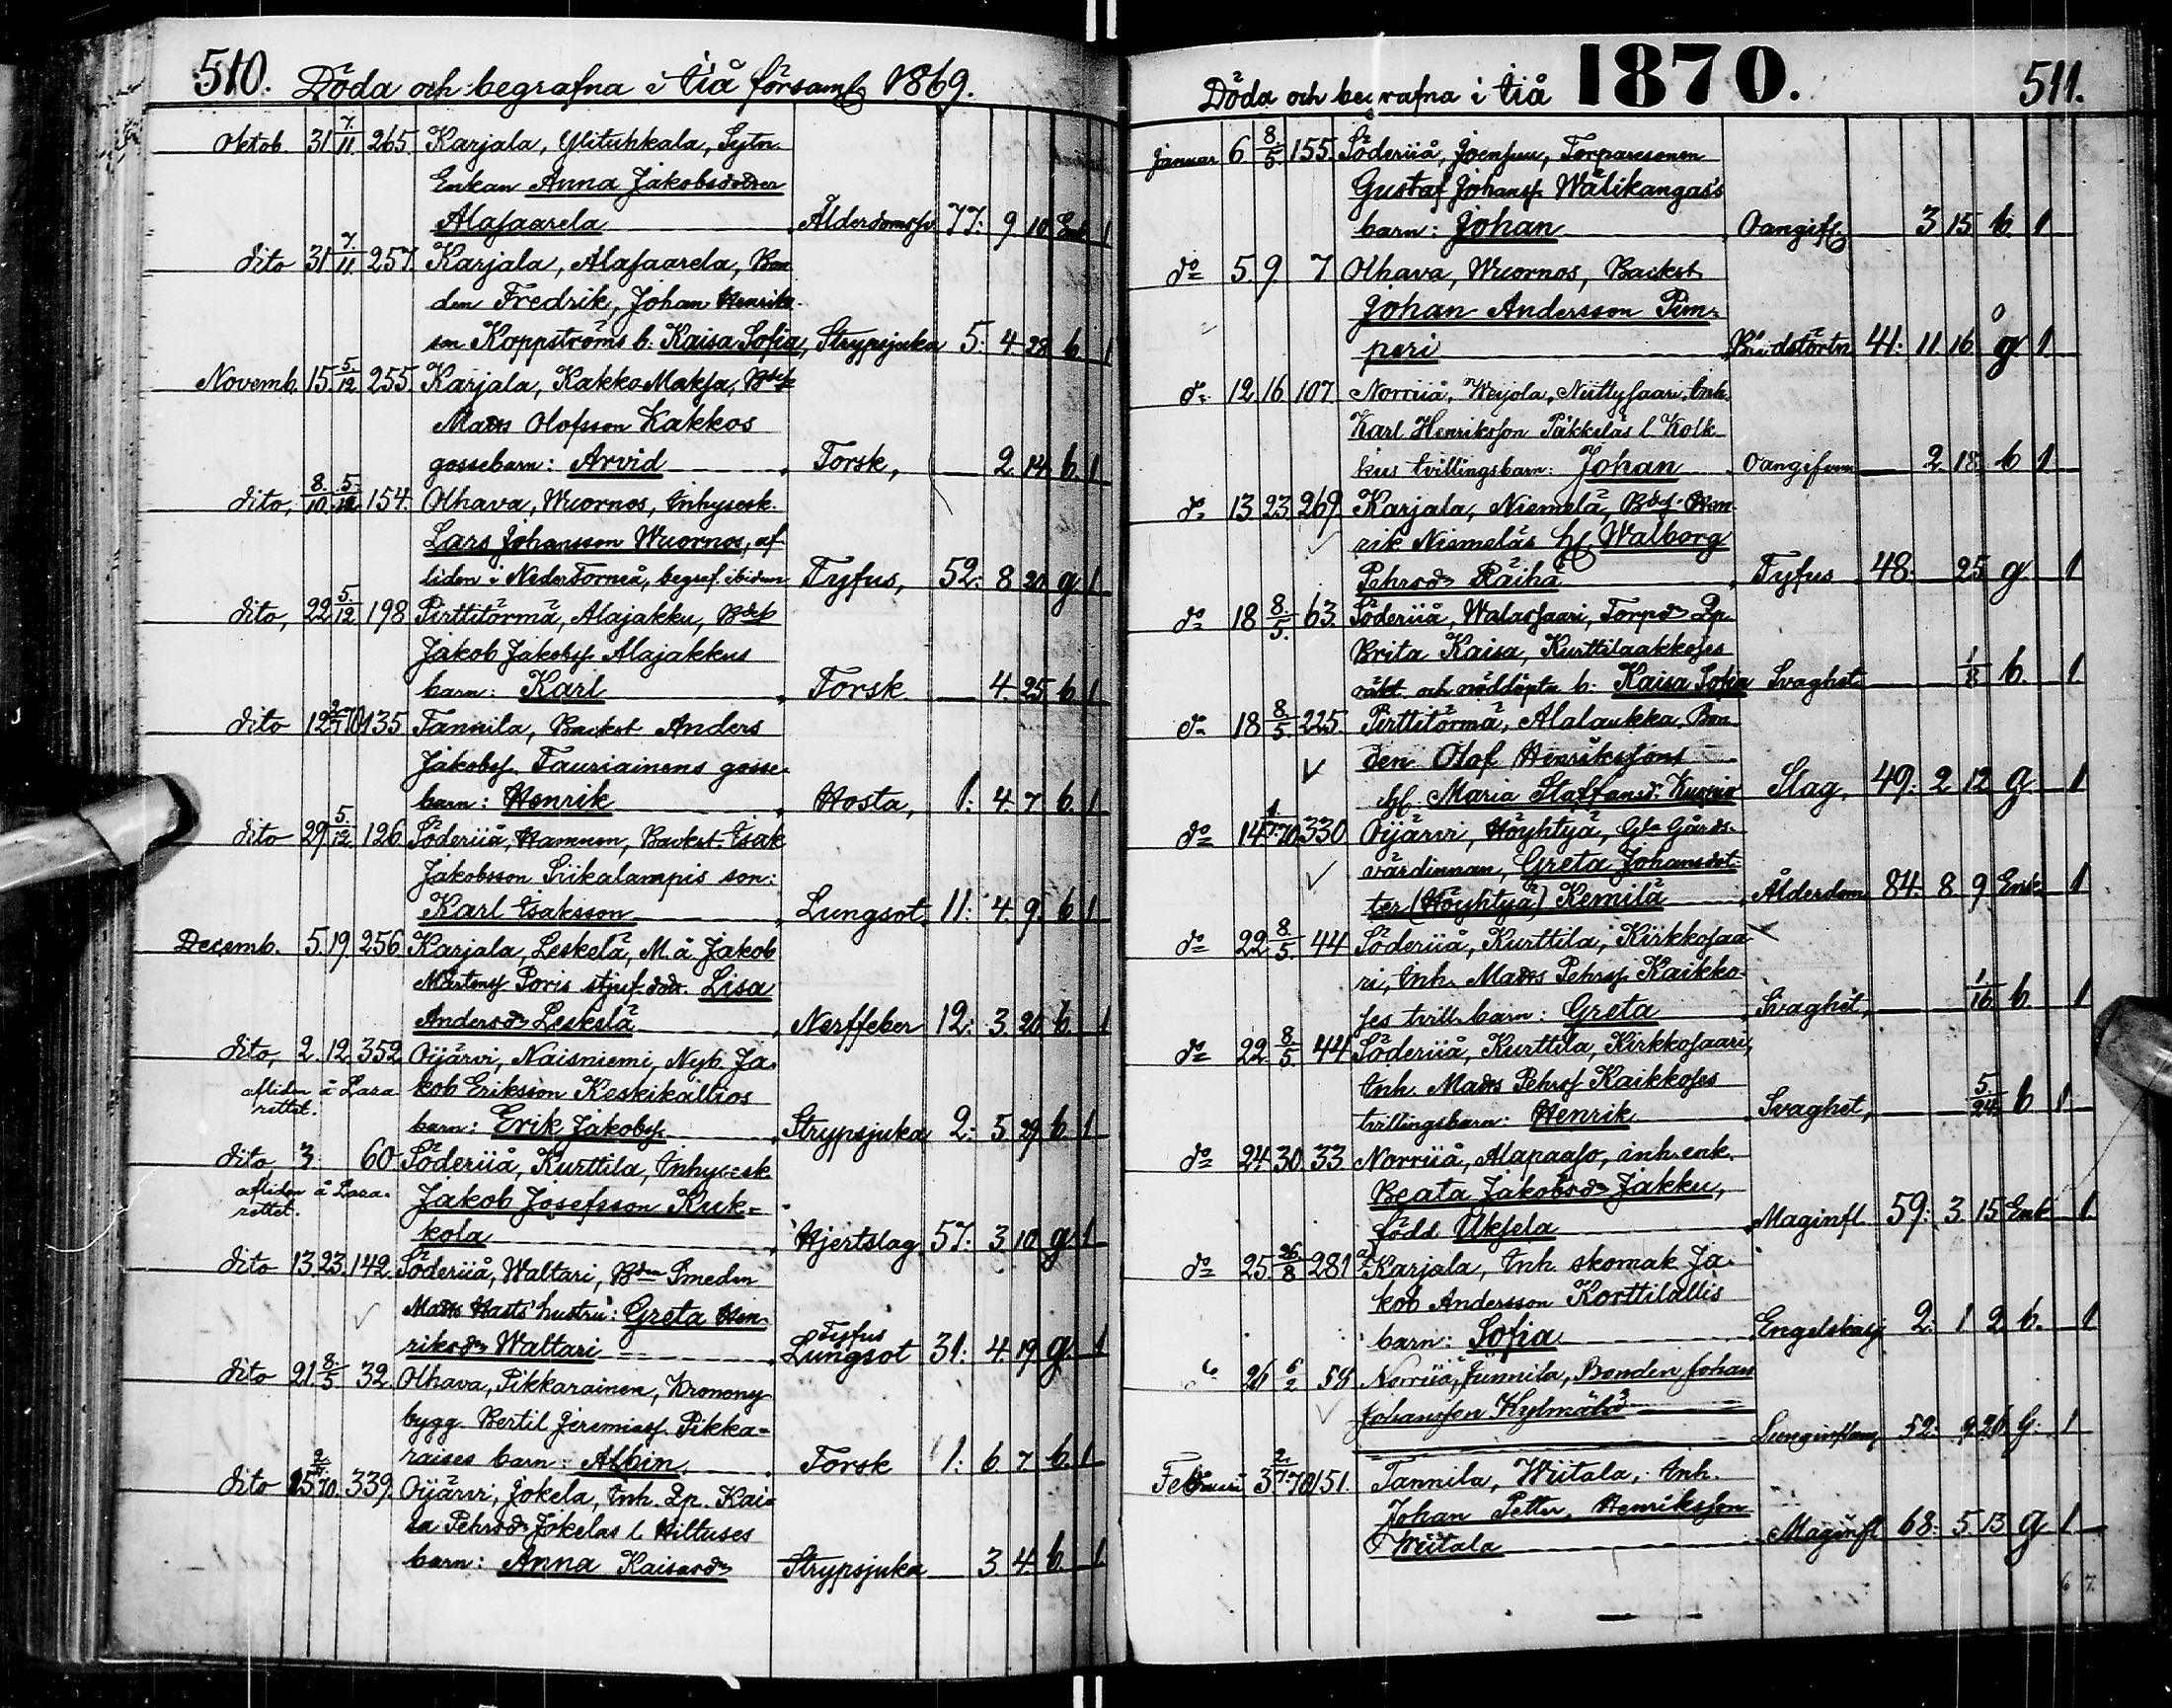 510. Döda och begrafna i Iiå församl 1869.
Oktob. 31 7/11. 265. Karjala, Ylituhkala, Sytn.
Enkan Anna Jakobsdotter
Alasaarela Ålderdomssv. 77: 9. 10 Enk 1
dito 31 7/11. 257. Karjala, Alasaarela, Bon
den Fredrik, Johan Henriks
son Koppströms b: Kaisa Sofia, Strypsjuka 5: 4 28 b. 1
Novemb. 15. 5/12 255 Karjala, Kakko Maksa,
Matts Olofsson Kakkos
gossebarn: Arvid Torsk, 2. 14. b. 1
dito, 8./10. 5./12. 154. Olhava, Wuornos, Inhysesk.
Lars Johansson Wuornos, af-
liden i Neder Torneå, begraf. ibidem Tyfus, 52: 8 20 g. 1
dito, 22 5./12 198 Pirttitörmä, Alajakku,
Jakob Jakobss. Alajakkus
barn: Karl Torsk 4 25 b. 1
dito 12 70 135 Tannila, Backst Anders
Jakobss. Tauriainens gosse-
barn: Henrik Hosta, 1: 4 7 b. 1
dito 29 5./12 126. Söderiiå, Hamnen, Backst. Isak
Jakobsson Siikalampis son:
Karl Isaksson Lungsot 11: 4. 9. b. 1
Decemb. 5. 19. 256 Karjala, Leskelä, M. å. Jakob
Mårtenss Poris styf. dotr. Lisa
Andersdr Leskelä Nerffeber 12: 3. 20. b. 1
dito, 2. 12. 352 Oijärvi, Naisniemi, Nyb. Ja-
afliden å Lasa kob Eriksson Keskikällios
rettet. barn: Erik Jakobss. Strypsjuka 2: 5 29 b. 1
dito, 3. 60 Söderiiå, Kurttila, Inhysesk
afliden å Lasa- Jakob Josefsson Kuk-
rettet. kola Hjertslag 57: 3 10 g. 1
dito 13. 23. 142. Söderiiå, Waltari, Bden Smeden
Matts Hasts hustru: Greta Hen-
riksdr Waltari Tyfus Lungsot 31: 4. 19 g. 1
dito 21. 8./5. 32. Olhava, Pikkarainen, Krononny-
bygg. Bertil Jeremiass. Pikka-
raises barn: Albin Torsk 1: 6. 7. b. 1
dito 25 70. 339. Oijärvi, Jokela, Inh. Lp. Kai-
sa Pehrsdr Jokelas l. Hiltuses
barn: Anna Kaisasdr Strypsjuka 3. 4. b. 1
Döda och begrafna i Iiå 1870. 511.
Januar. 6 8/5. 155. Söderiiå, Joensuu, Torparesonen
Gustaf Johanss. Wälikangas's
barn: Johan Oangifv. 3 15 b. 1
do 5. 9. 7 Olhava, Wuornos, Backst
Johan Andersson Pim-
peri Blodstörtn. 41: 11. 16. g. 1
do 12 16 107. Norriiå, Weijola, Niittysaari, Inh.
Karl Henriksson Päkkeläs l. Kolk-
kus tvillingsbarn: Johan Oangifven 2 18. b 1
do 13. 23. 269. Karjala, Niemelä, Hen-
rik Niemeläs h. Walborg
Pehrsdr Räihä Tyfus 48: 25 g. 1
do 18 8./5. 63. Söderiiå, Walassaari, Torpd Lp.
Brita Kaisa, Kurttilaakkoses
oäkt. och nöddöpta b: Kaisa Sofia Svaghet 1/8 b. 1
do 18 8./5. 225. Pirttitörmä, Alalaukka, Bon-
den Olof Henrikssons
h: Maria Staffansd. Slag. 49: 2 12 g. 1
do 14 70 330 Oijärvi, Höyhtyä, Gla Gårds-
värdinnan, Greta Johansdot-
ter (Höyhtyä) Kemilä Ålderdom 84: 8 9 Enk. 1
do 22 8./5. 44 Söderiiå, Kurttila, Kirkkosaa-
ri, Inh. Matts Pehrss Kaikko-
ses tvill. barn: Greta Svaghet, 1/16. b. 1
do 22 8./5. 44 Söderiiå, Kurttila, Kirkkosaari,
Inh. Matts Pehrss Kaikkoses
tvillingsbarn: Henrik Svaghet, 5./24. b. 1
do 24. 30. 33 Norriiå, Alapaaso, inh. enk.
Beata Jakobsdr Jakku,
född Uksela Maginfl. 59: 3. 15 Enk 1.
do 25 26/8 281 Karjala, Inh. skomak. Ja-
kob Andersson Korttilallis
barn: Sofia Engelskasj. 2: 1 2 b. 1
26 6/2 58 Norriiå, Junnila, Bonden Johan
Johansson Kylmälä Lunginflamm 52: 9 26 G. 1
Februari 3 2/7. 70 151. Tannila, Wiitala, Inh.
Johan Petter, Henriksson
Wiitala Maginfl 68: 5 13 g 1
6 7.